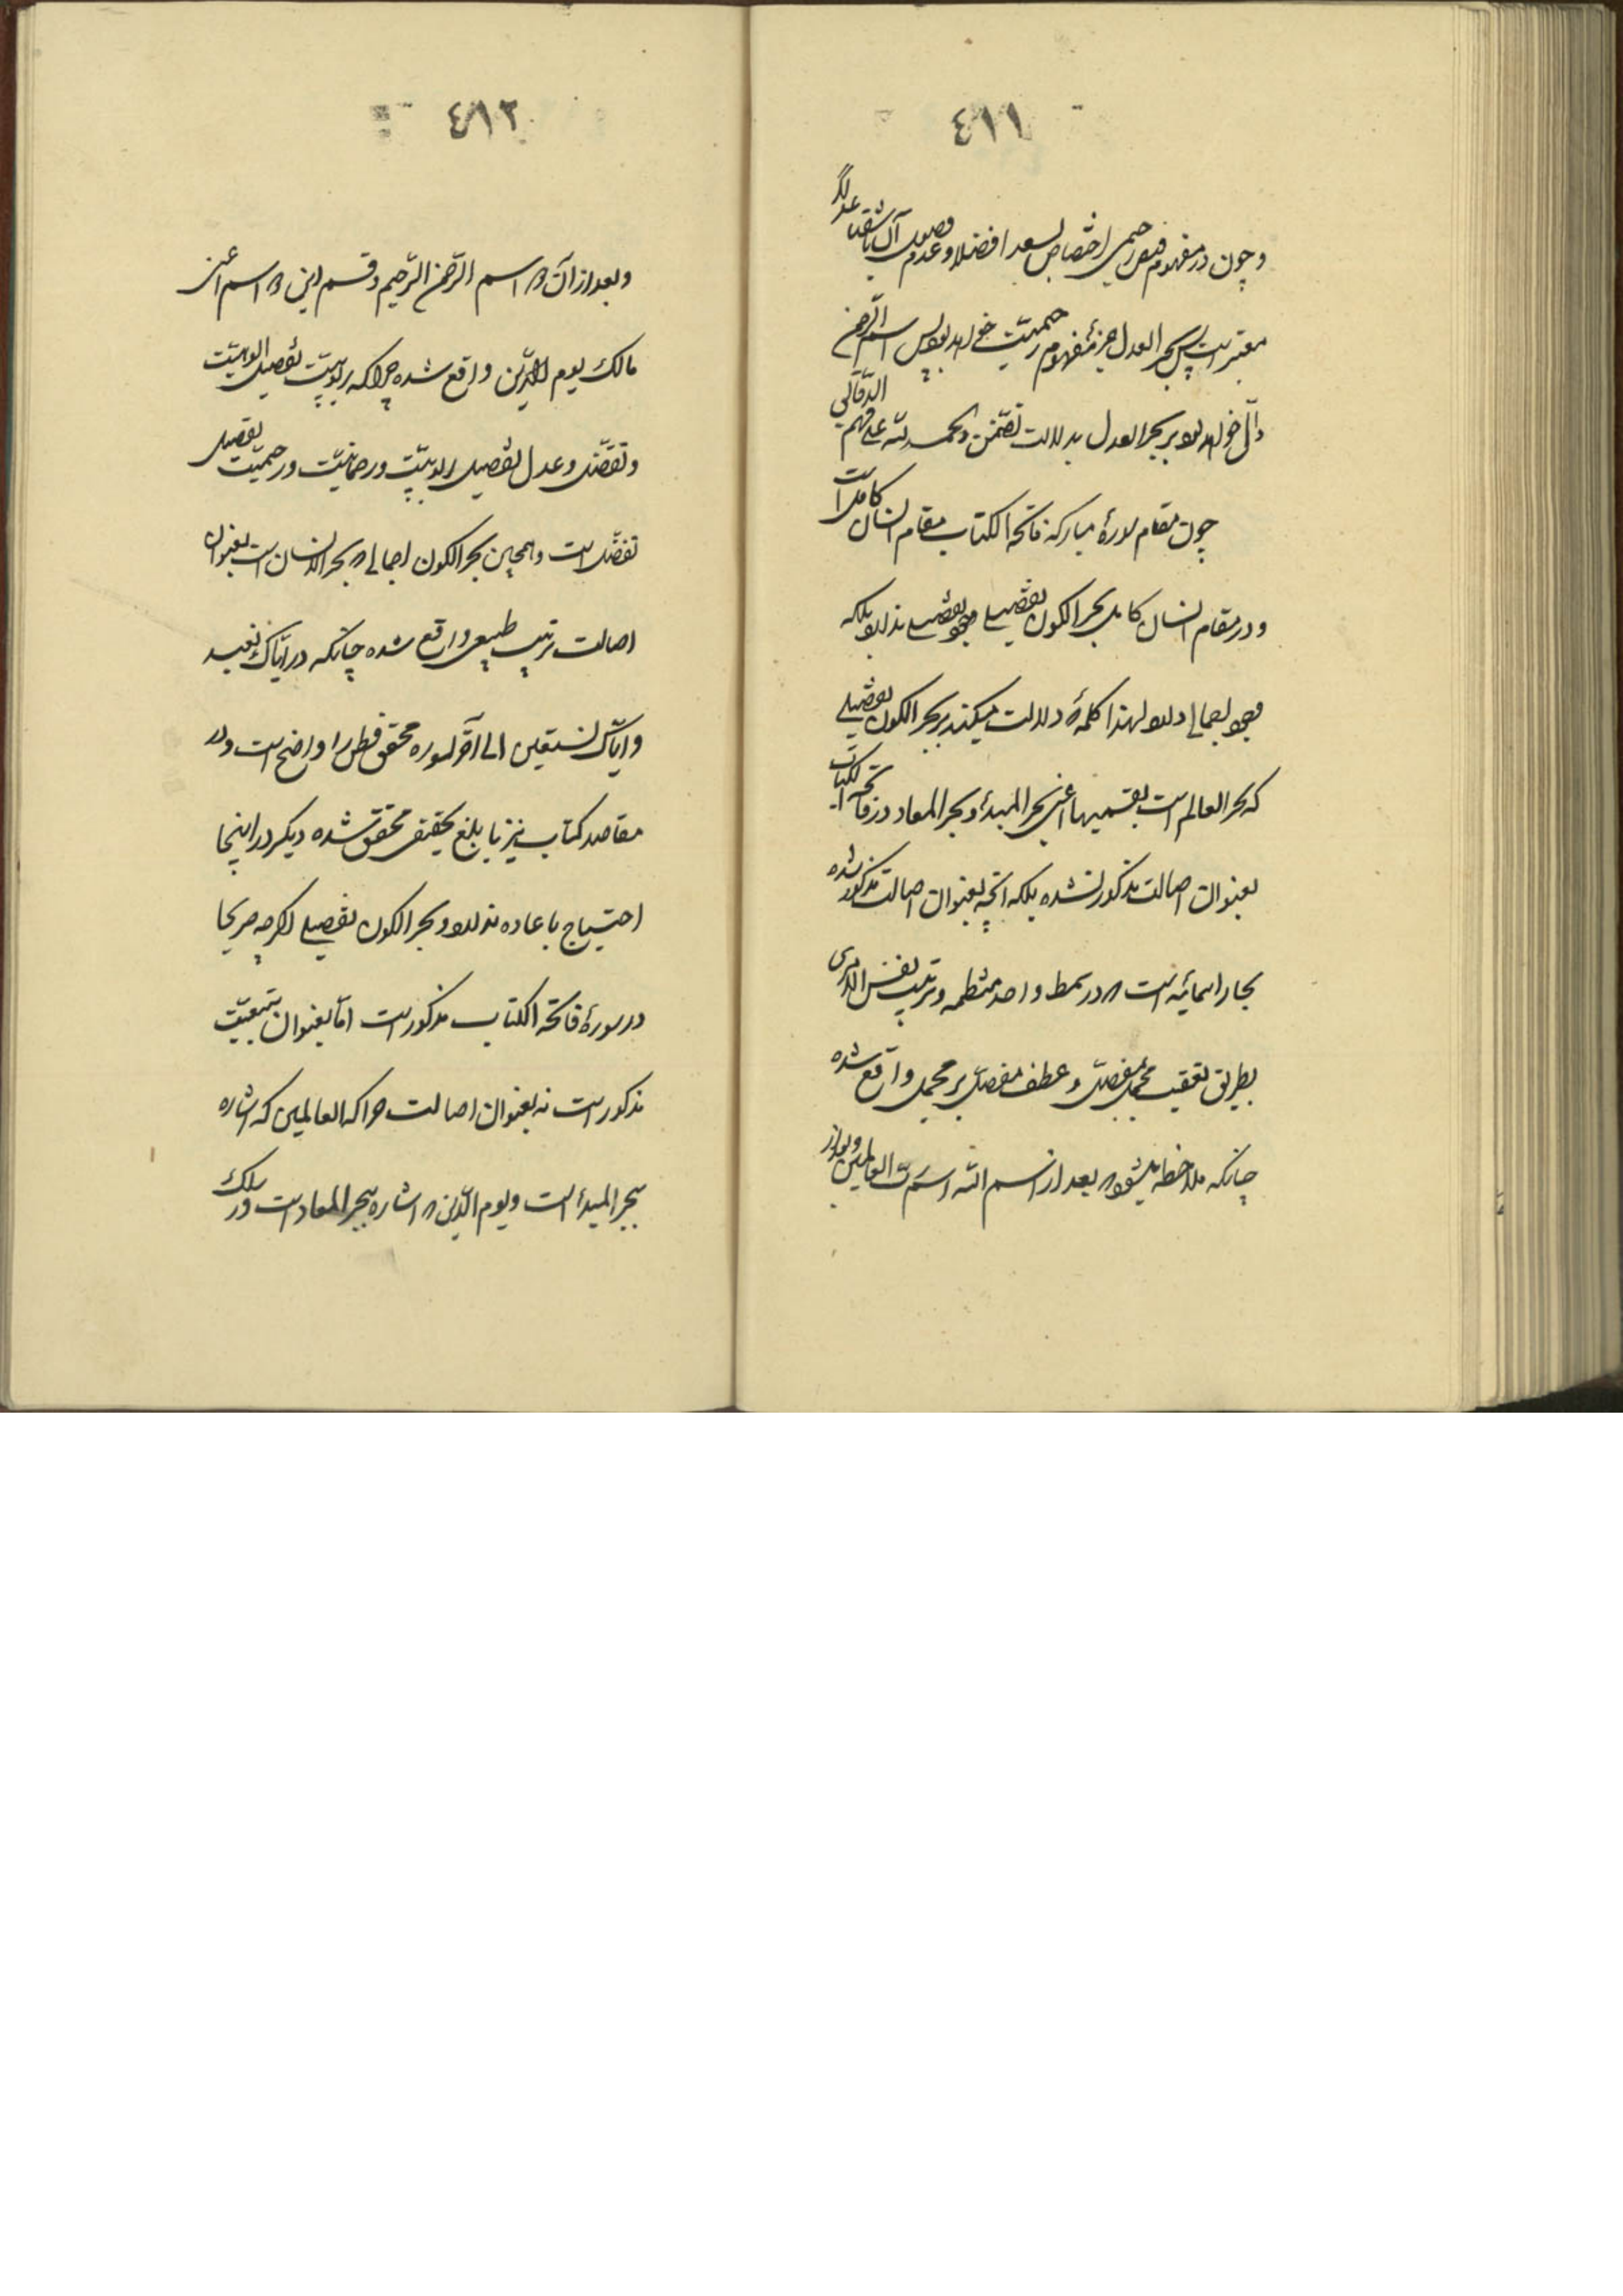 ٤١١
وچون در مفهوم فیض رحیمی اختصاص بسعدا فضلا و عدم وصول آن باشقیا عدلا
معتبر است پس بحر العدل جزء مفهوم رحیمیت خواهد بود پس اسم الرحمن
دال خواهد بود بر بحر العدل بدلالت تضمن والحمد لله علی فهم الدقائق
چون مقام سورهٔ مبارکه فاتحة الکتاب مقام انسان کامل است
و در مقام انسان کامل بحر الکون تفصیلی وجود تفصیلی ندارد بلکه
وجود اجمالی دارد لهذا کلمهٔ دلالت میکند بر بحر الکون تفصیلی
که بحر العالم است بقسمیها اعنی بحر المبدأ و بحر المعاد در فاتحة الکتاب
بعنوان اصالت مذکور نشده بلکه آنچه بعنوان اصالت مذکور شده
بحار اسمائیه است که در سمط واحد منتظمه و ترتیب نفس الامری
بطریق تعقیب مجمل بمفصل و عطف مفصل بر مجمل واقع شده
چنانکه ملاحظه میشود که بعد از اسم الله اسم رب العالمین و بعد از
٤١٢
و بعد از آن که اسم الرحمن الرحیم و قسم این که اسم اعنی
مالک یوم الدین واقع شده چراکه ربوبیت تفصیل الوهیت
و تفضل و عدل تفصیل ربوبیت و رحمانیت و رحیمیت تفصیل
تفضل است و همچنین بحر الکون اجمالی که بحر الانسان است بعنوان
اصالت بترتیب طبیعی واقع شده چنانکه در ایاک نعبد
و ایاک نستعین الی آخر السوره محقق فطن را واضح است و در
مقاصد کتاب نیز بابلغ تحقیقی محقق شده دیگر در اینجا
احتیاج باعاده ندارد و بحر الکون تفصیلی اگرچه صریحا
در سورهٔ فاتحة الکتاب مذکور است اما بعنوان تبعیت
مذکور است نه بعنوان اصالت چراکه العالمین که اشاره
ببحر المبدأ است و یوم الدین که اشاره ببحر المعاد است در سلک